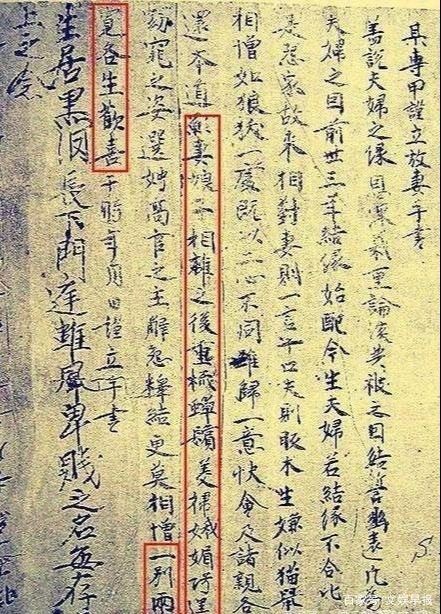 某專甲謹立放妻手書
蓋說夫婦之緣恩深義重論談共被之因結誓幽遠凡
夫婦之因前世三年結緣始配今生夫婦若結緣不合比
是怨家故來相對妻則一言十口夫則販木生嫌似貓鼠
相憎如狼一處既以二心不同難歸一意快會及諸親各
還本道願妻娘子相離之後重梳蟬鬢美掃娥媚巧逞
窈窕之姿選娉高官之主解怨釋結更莫相憎一別兩
寬各生歡喜于時年月日謹立手書
生居黑長下門庭雖風卑賤之名每存
上之念
百家号/文娱早报